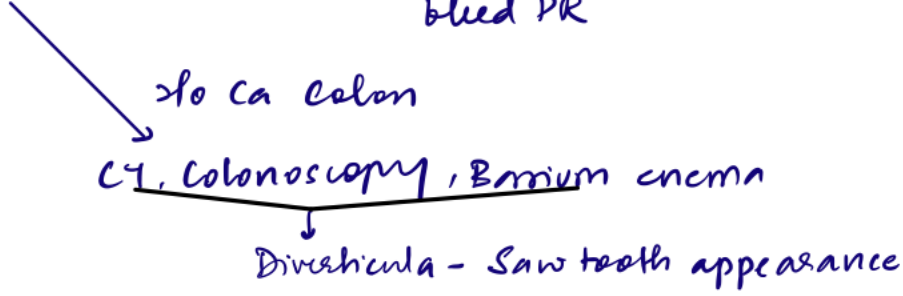 bleed PR
r/o Ca Colon
CT, Colonoscopy, Barium enema
Diverticula - Saw tooth appearance